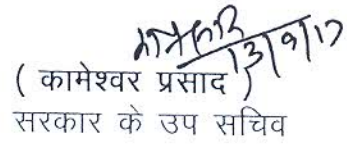 13/9/17
( कामेश्वर प्रसाद )
सरकार के उप सचिव